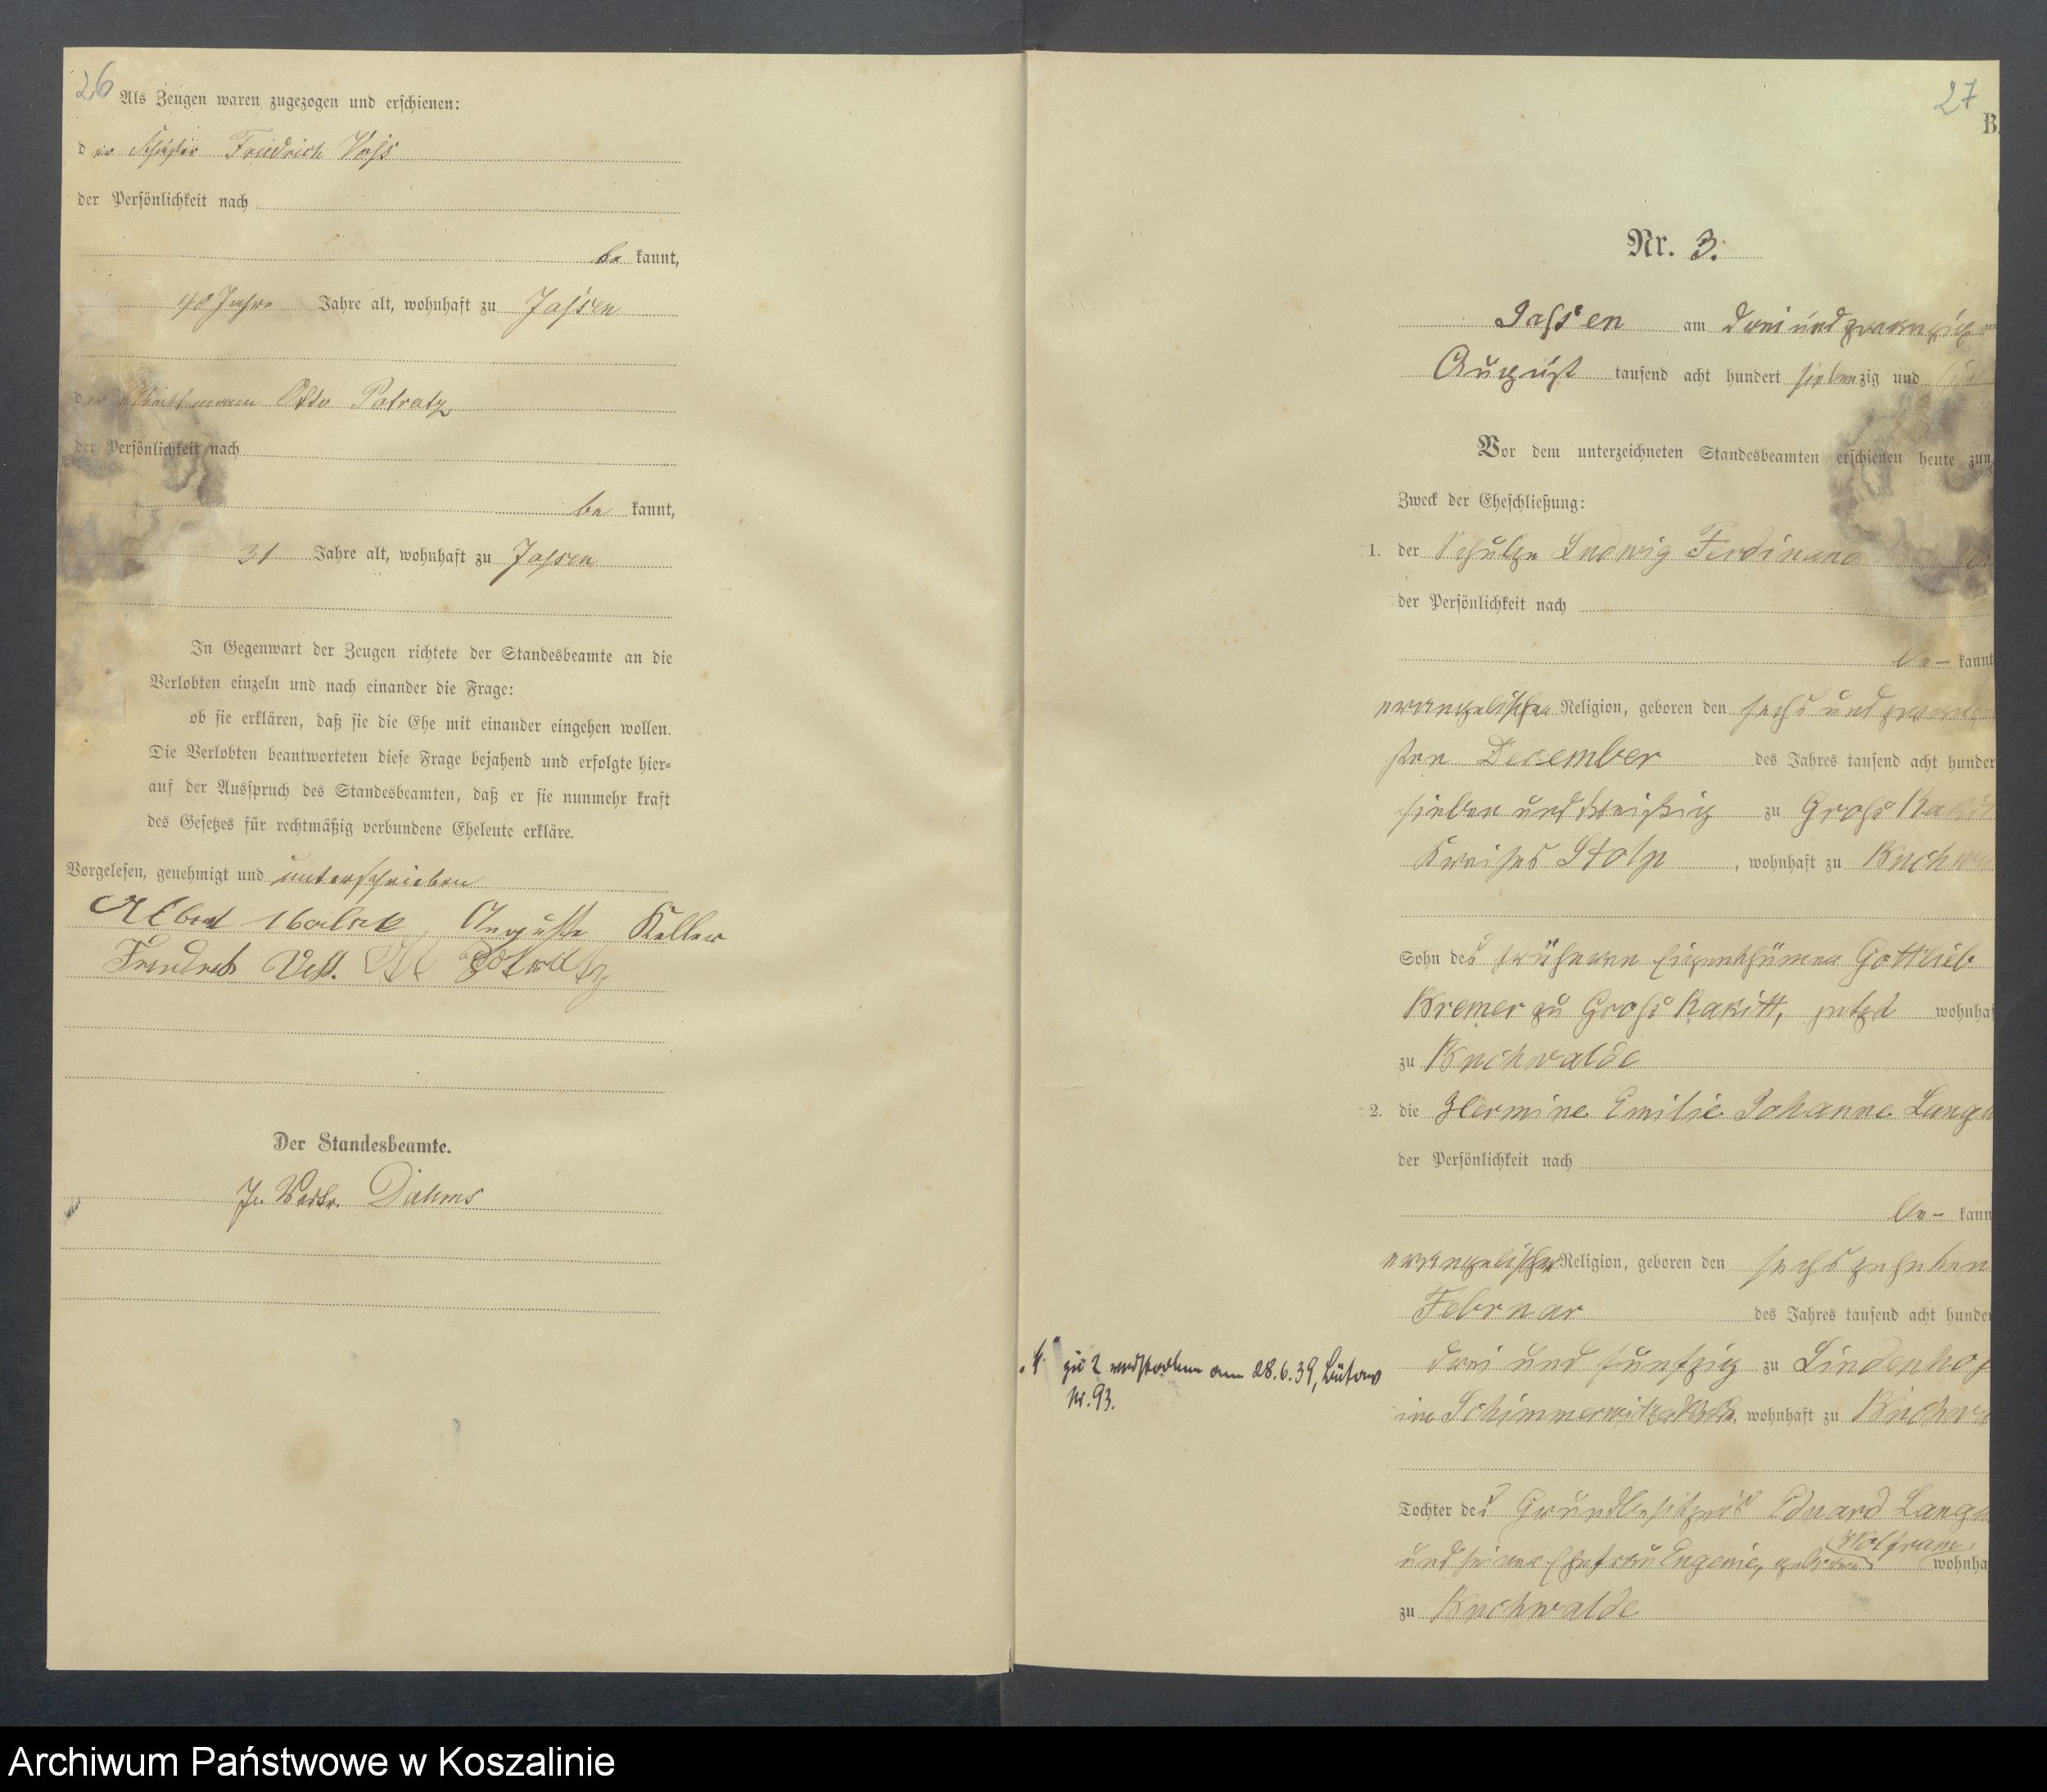 26
Als Zeugen waren zugezogen und erschienen:
der Friedrich Voss
der Persönlichkeit nach
be kannt,
40 Jahre Jahre alt, wohnhaft zu Jassen
Otto Potratz
der Persönlichkeit nach
be kannt,
31 Jahre alt, wohnhaft zu Jassen
In Gegenwart der Zeugen richtete der Standesbeamte an die
Verlobten einzeln und nach einander die Frage:
ob sie erklären, daß sie die Ehe mit einander eingehen wollen.
Die Verlobten beantworteten diese Frage bejahend und erfolgte hier=
auf der Ausspruch des Standesbeamten, daß er sie nunmehr kraft
des Gesetzes für rechtmäßig verbundene Eheleute erkläre.
Vorgelesen, genehmigt und unterschrieben
Albert Auguste Keller
Potratz
Der Standesbeamte.
In Vertr. Dahms
27
B.
Nr. 3.
Jassen am drei und zwanzig
August tausend acht hundert siebenzig und
Vor dem unterzeichneten Standesbeamten erschienen heute zum
Zweck der Eheschließung:
1. der Schulze Ludwig Ferdinand
der Persönlichkeit nach
be- kannt
evangelischer Religion, geboren den sechs und zwanzig
sten December des Jahres tausend acht hunder
sieben und dreißig zu Gross Rakitt
Kreises Stolp, wohnhaft zu Buchwa
Sohn des früheren Eigenthümer Gottlieb
Kremer zu Gross Rakitt, jetzt wohnhaf
zu Buchwalde
2. die Hermine Emilie Johanne Lange
der Persönlichkeit nach
be- kann
evangelischer Religion, geboren den sechszehnten
Februar des Jahres tausend acht hunder
drei und fünfzig zu Lindenhof
in Schimmerwitz, wohnhaft zu Buchwa
Tochter des Grundbesitzers Eduard Lange
und seiner Ehefrau Eugenie, geborene Wolfram, wohnha
zu Buchwalde
zu 2 verstorben am 28.6.39, Bütow
Nr. 93.
Archiwum Państwowe w Koszalinie